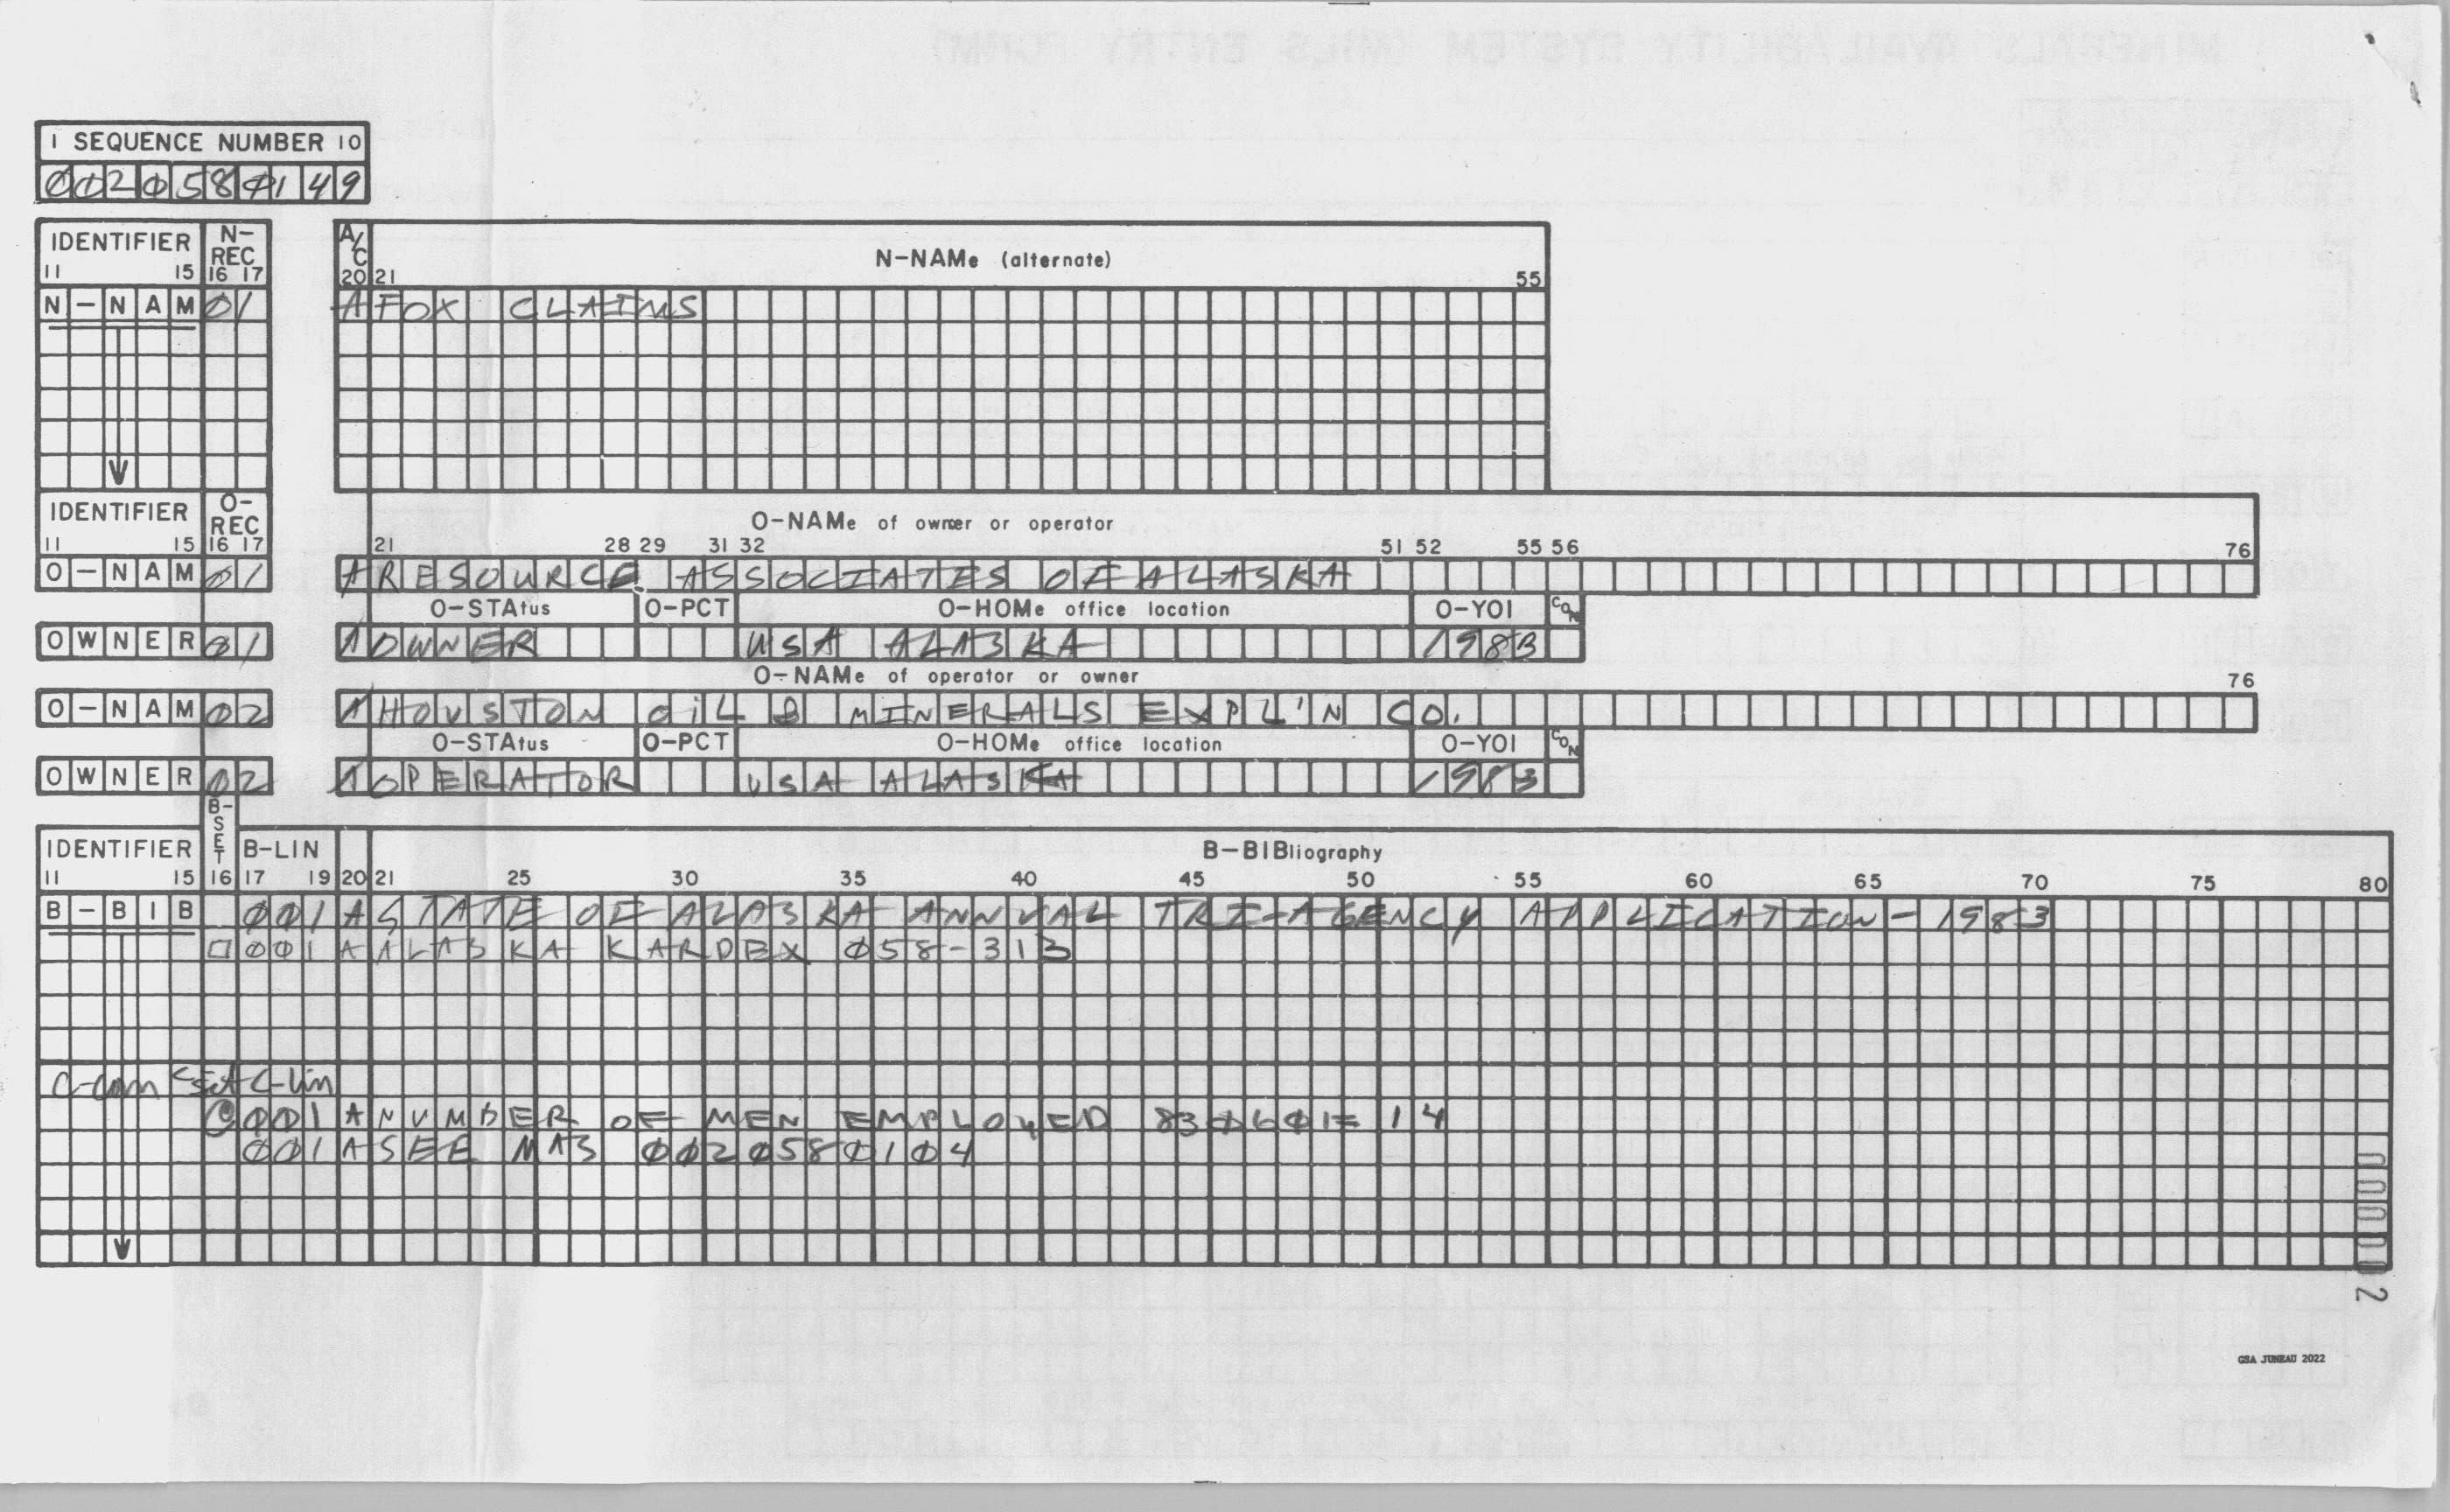 1 SEQUENCE NUMBER 10
0020580149
IDENTIFIER N-REC A/C N-NAMe (alternate)
11 15 16 17 20 21 55
N-NAM 01 A FOX CLAIMS
IDENTIFIER O-REC O-NAMe of owner or operator
11 15 16 17 21 28 29 31 32 51 52 55 56 76
O-NAM 01 A RESOURCE ASSOCIATES OF ALASKA
O-STAtus O-PCT O-HOMe office location O-YOI CON
OWNER 01 A OWNER USA ALASKA 1983
O-NAMe of operator or owner 76
O-NAM 02 A HOUSTON OIL & MINERALS EXPL'N CO.
O-STAtus O-PCT O-HOMe office location O-YOI CON
OWNER 02 A OPERATOR USA ALASKA 1983
IDENTIFIER B-SET B-LIN B-BIBliography
11 15 16 17 19 20 21 25 30 35 40 45 50 55 60 65 70 75 80
B-BIB 001 A STATE OF ALASKA ANNUAL TRI-AGENCY APPLICATION - 1983
001 A ALASKA KARDEX 058-313
C-com C-set C-lin
C 001 A NUMBER OF MEN EMPLOYED 830601= 14
001 A SEE MAS 0020580104
000002
GSA JUNEAU 2022